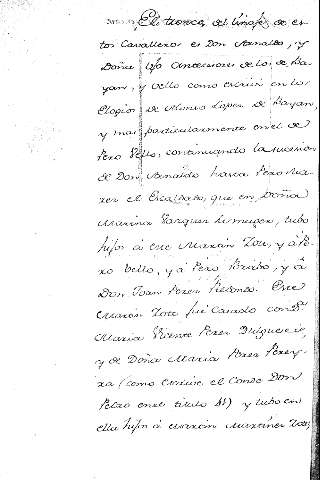 El tronco, del linaje, de es
tos Cavalleros es Don Arnaldo, y
Doña Ufo Ancecsores de los de Ba
yan, y dello como escrivi en los
Elogios de Alonso Lopez de Bayan,
y mas particularmente en el de
Pero Vello, continuando la sucesion
de Don Arnaldo hasta Pero Sua
rez el Escaldado, que en Doña
Marina Vazquez su muger, tubo
hijos á este Martin Zote, y á Pe
ro Vello, y á Pero Bribo, y á
Don Juan Perez Redondo. Este
Martin Zote fué Casado con Dª
Maria Vicente Perez
y de Doña Maria Perez Perey-
ra (como escrive el Conde Don
Pedro en el titulo) y tubo en
ella hijos á Martin Martinez Zote,